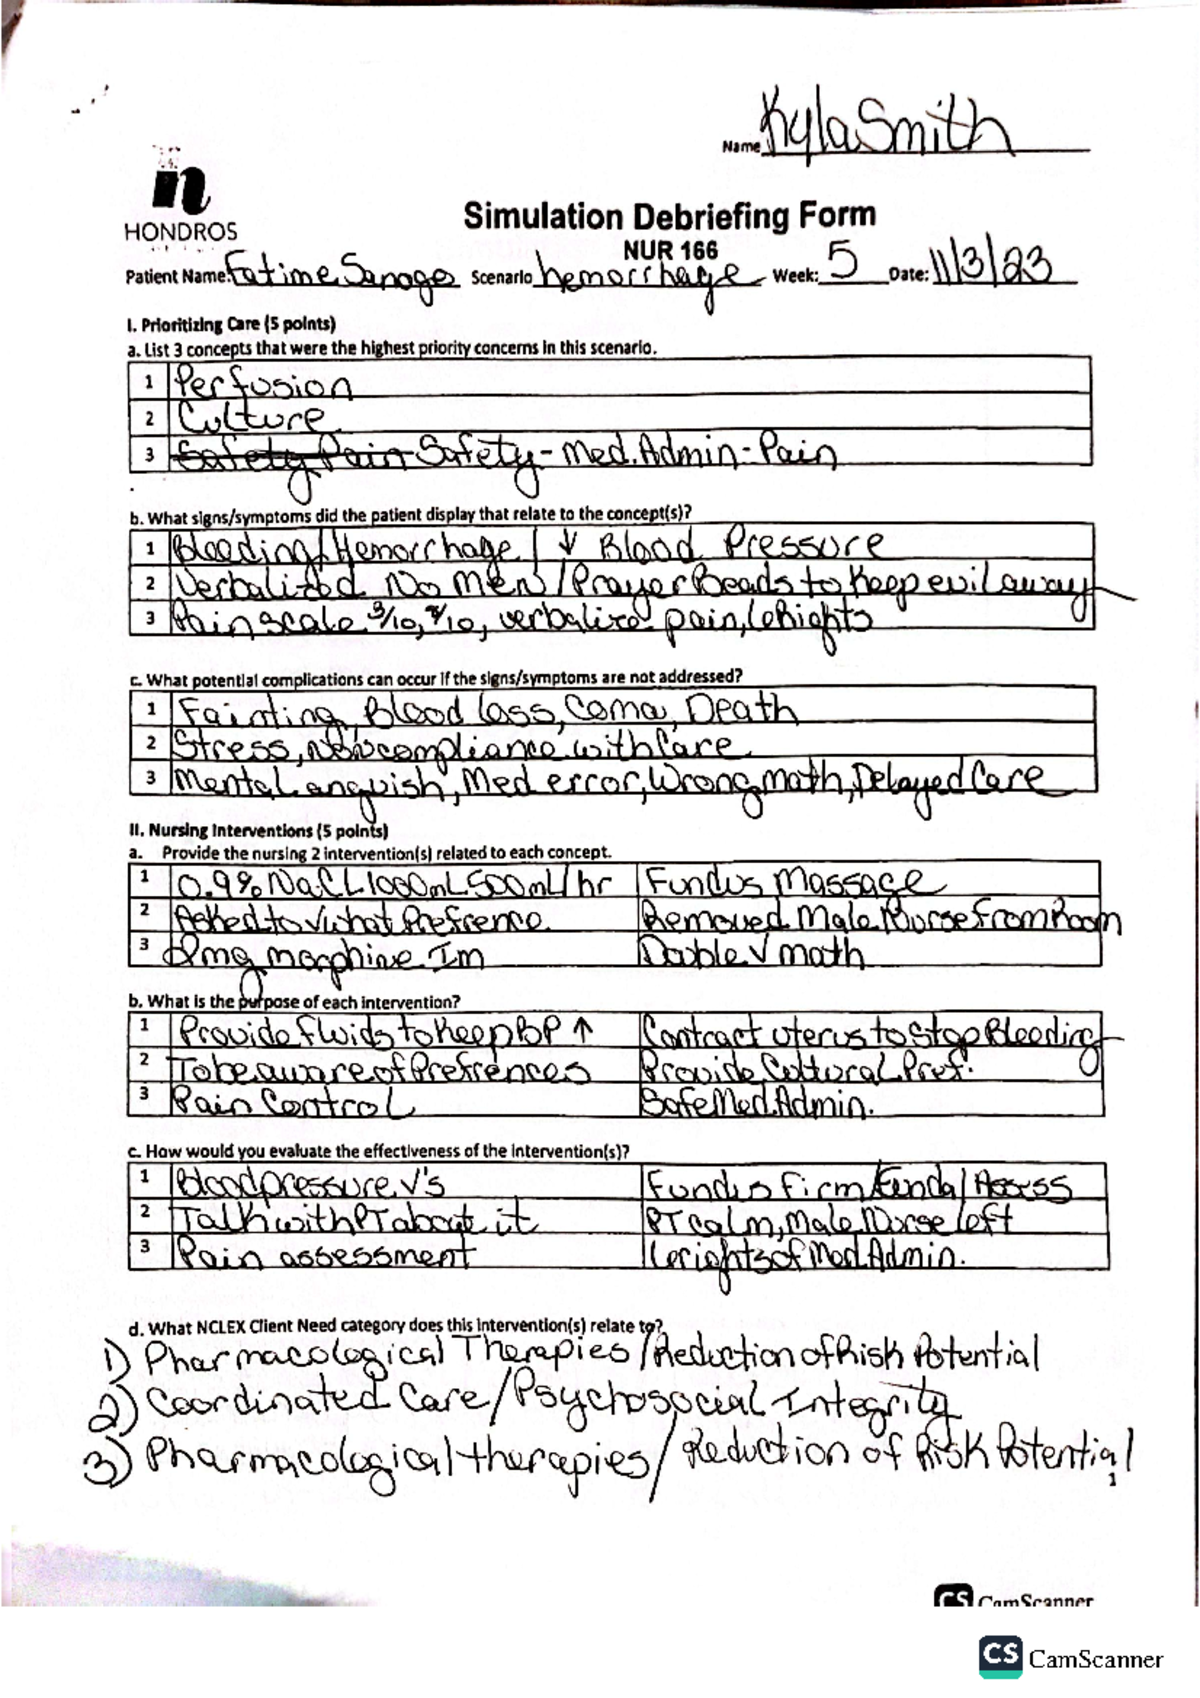 Name Kyla Smith
n
HONDROS
Simulation Debriefing Form
NUR 166
Patient Name: Fatime Sanogo Scenario hemorrhage Week: 5 Date: 11/3/23
I. Prioritizing Care (5 points)
a. List 3 concepts that were the highest priority concerns in this scenario.
1 Perfusion
2 Culture
3 Safety Pain Safety - Med. Admin - Pain
b. What signs/symptoms did the patient display that relate to the concept(s)?
1 Bleeding/Hemorrhage / ↓ Blood Pressure
2 Verbalized No Men / Prayer Beads to Keep evil away
3 Pain scale 3/10, verbalize pain, 6 Rights
c. What potential complications can occur if the signs/symptoms are not addressed?
1 Fainting, Blood loss, Coma, Death
2 Stress, Noncompliance with Care
3 Mental anguish, Med error, Wrong math, Delayed Care
II. Nursing Interventions (5 points)
a. Provide the nursing 2 intervention(s) related to each concept.
1 0.9% NaCL 1000mL 500mL/hr Fundus Massage
2 Asked to √ what Prefrence. Removed Male Nurse From Room
3 2mg morphine Im Double √ math
b. What is the purpose of each intervention?
1 Provide fluids to Keep BP ↑ Contract uterus to Stop Bleeding
2 To be aware of Prefrences Provide Cultural Pref.
3 Pain Control Safe Med. Admin.
c. How would you evaluate the effectiveness of the intervention(s)?
1 Blood pressure √'s Fundus Firm/Fundal Assess
2 Talk with PT about it PT calm, Male Nurse left
3 Pain assessment 6 rights of Med. Admin.
d. What NCLEX Client Need category does this intervention(s) relate to?
1) Pharmacological Therapies / Reduction of Risk Potential
2) Coordinated Care / Psychosocial Integrity
3) Pharmacological therapies / Reduction of Risk Potential
1
CS CamScanner
CS CamScanner